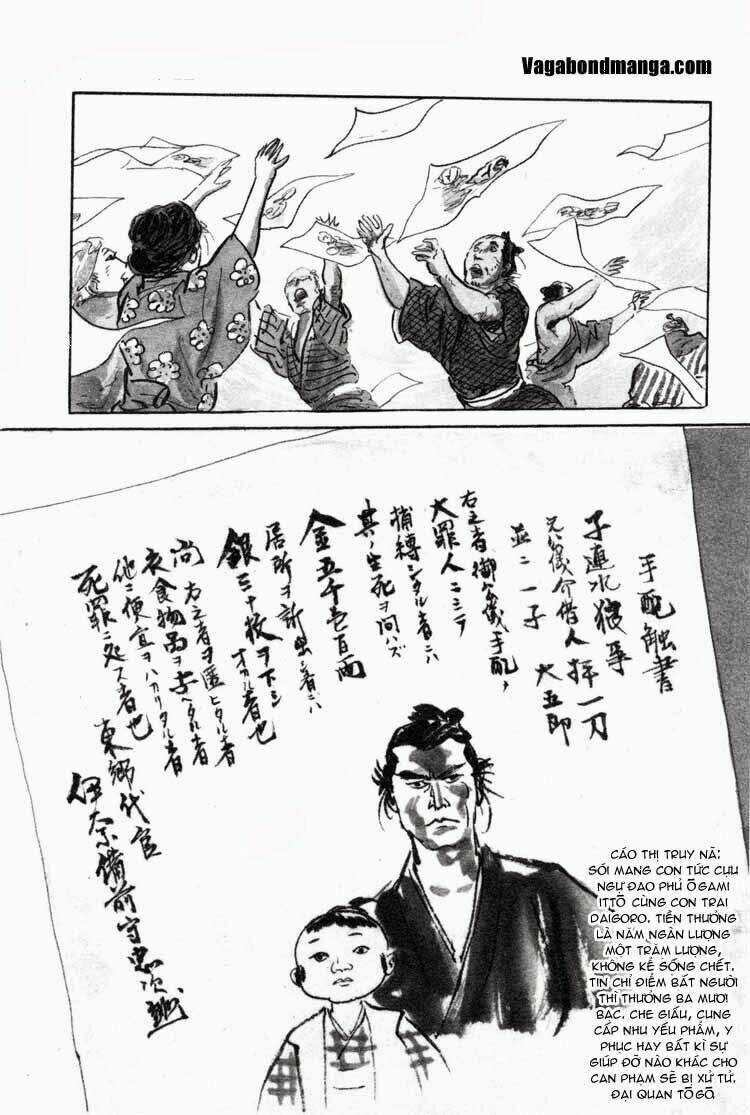 Vagabondmanga.com
手配触書
子連れ狼事
元公儀介錯人 拝一刀
並ニ一子 大五郎
右之者御公儀手配ノ
大罪人ニシテ
捕縛シタル者ニハ
其ノ生死ヲ問ハズ
金五千壱百両
居所ヲ訴出シ者ニハ
銀三十枚ヲ下シ
オカル者也
尚右之者ヲ匿ヒタル者
衣食物品ヲ与ヘタル者
他ニ便宜ヲハカリタル者
死罪ニ処ス者也
東郷代官
伊奈備前守忠次
CÁO THỊ TRUY NÃ:
SÓI MANG CON TỨC CỰU
NGỰ ĐAO PHỦ ŌGAMI
ITTŌ CÙNG CON TRAI
DAIGORO. TIỀN THƯỞNG
LÀ NĂM NGÀN LƯỢNG
MỘT TRĂM LƯỢNG,
KHÔNG KỂ SỐNG CHẾT.
TIN CHỈ ĐIỂM BẮT NGƯỜI
THÌ THƯỞNG BA MƯƠI
BẠC. CHE GIẤU, CUNG
CẤP NHU YẾU PHẨM, Y
PHỤC HAY BẤT KÌ SỰ
GIÚP ĐỠ NÀO KHÁC CHO
CAN PHẠM SẼ BỊ XỬ TỬ.
ĐẠI QUAN TŌGŌ